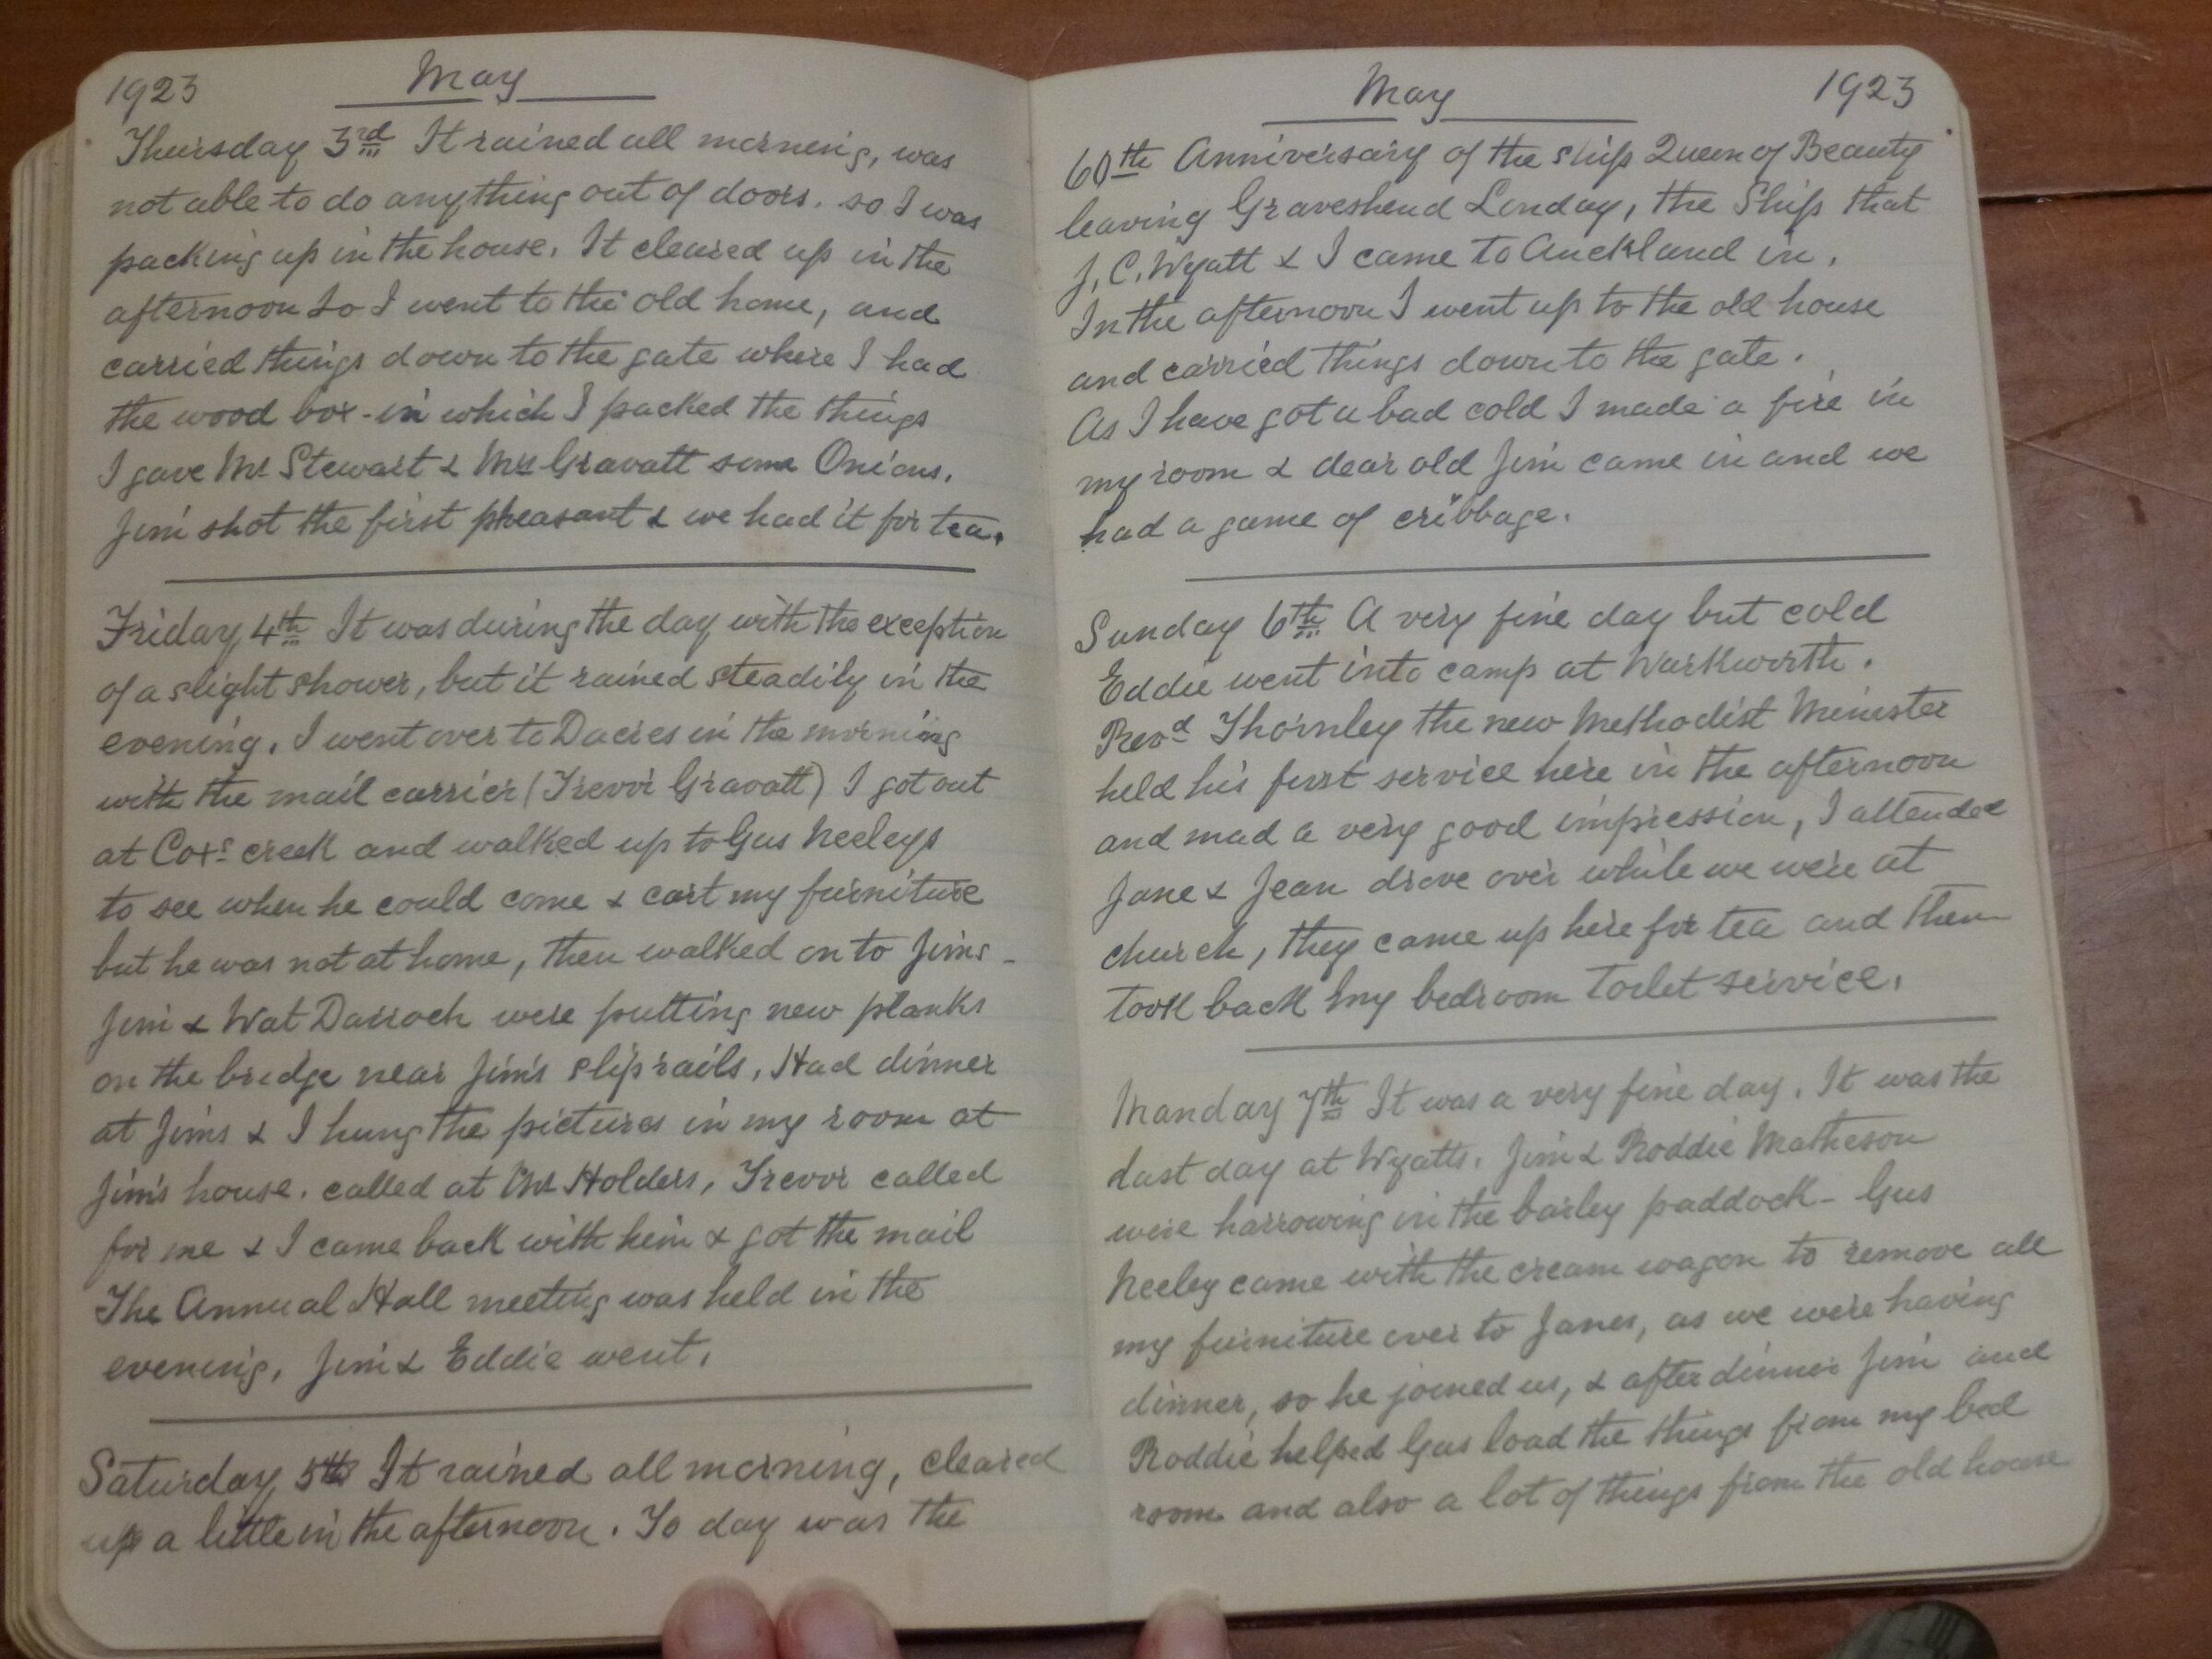 1923 May
Thursday 3rd It rained all morning, was
not able to do anything out of doors. so I was
packing up in the house. It cleared up in the
afternoon so I went to the old home, and
carried things down to the gate where I had
the wood box - in which I packed the things
I gave Mr Stewart & Mrs Gravatt some Onions.
Jim shot the first pheasant & we had it for tea.
Friday 4th It was during the day with the exception
of a slight shower, but it rained steadily in the
evening. I went over to Dacres in the morning
with the mail carrier (Trevor Gravatt) I got out
at Coxs creek and walked up to Gus Neeleys
to see when he could come & cart my furniture
but he was not at home, then walked on to Jims -
Jim & Wat Darroch were putting new planks
on the bridge near Jim's sliprails. Had dinner
at Jims & I hung the pictures in my room at
Jim's house. called at Holders, Trevor called
for me & I came back with him & got the mail
The Annual Hall meeting was held in the
evening, Jim & Eddie went.
Saturday 5th It rained all morning, cleared
up a little in the afternoon. To day was the
May 1923
60th Anniversary of the ship Queen of Beauty
leaving Graveshend Londay, the Ship that
J. C. Wyatt & I came to Auckland in.
In the afternoon I went up to the old house
and carried things down to the gate.
As I have got a bad cold I made a fire in
my room & dear old Jim came in and we
had a game of cribbage.
Sunday 6th A very fine day but cold
Eddie went into camp at Warkworth.
Revd Thornley the new Methodist Minister
held his first service here in the afternoon
and mad a very good impression, I attended
Jane & Jean drove over while we were at
church, they came up here for tea and then
took back my bedroom Toilet service.
Manday 7th It was a very fine day. It was the
last day at Wyatts. Jim & Roddie Matheson
were harrowing in the barley paddock - Gus
Neeley came with the cream wagon to remove all
my furniture over to Janes, as we were having
dinner, so he joined us, & after dinner Jim and
Roddie helped Gus load the things from my bed
room and also a lot of things from the old house